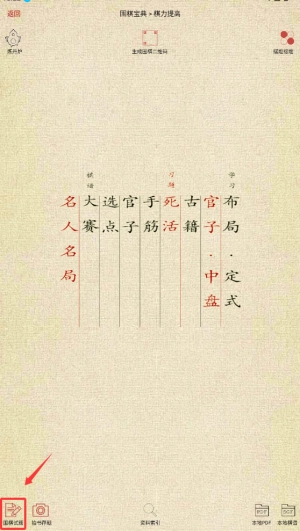 返回
围棋宝典 » 棋力提高
生成围棋二维码
学习
布局·定式
官子·中盘
古籍
习题
死活
手筋
官子
选点
棋谱
大赛
名人名局
围棋试题
拍书存题
资料索引
本地PDF
本地棋谱